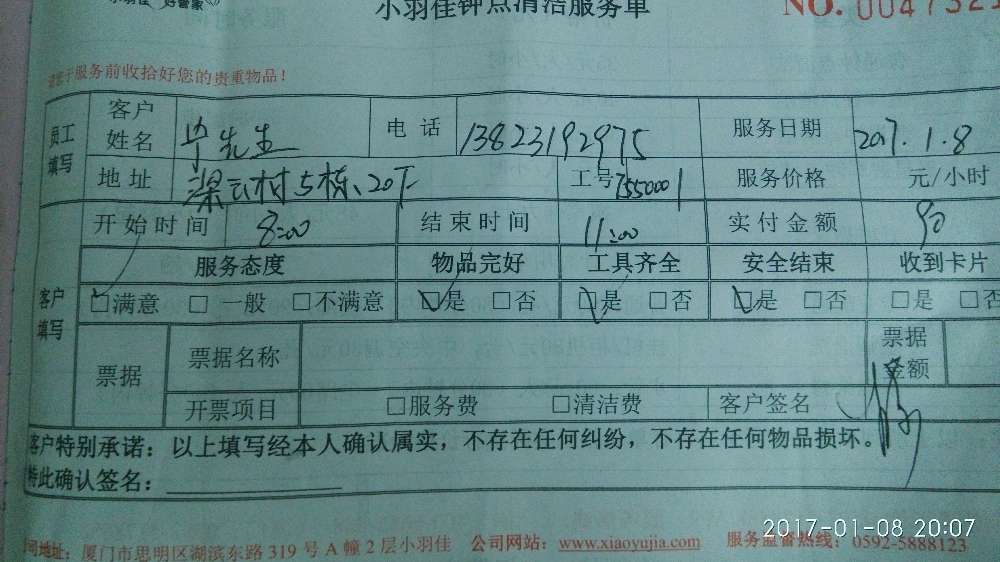 小羽佳 好管家
小羽佳钟点清洁服务单
NO. 0047321
请您于服务前收拾好您的贵重物品!
员工填写 客户姓名 毕先生 电话 13823192975 服务日期 2017.1.8
地址 梁云村5栋、20下 工号 7550001 服务价格 元/小时
开始时间 8:00 结束时间 11:00 实付金额 90
客户填写 服务态度 物品完好 工具齐全 安全结束 收到卡片
□满意 □一般 □不满意 □是 □否 □是 □否 □是 □否 □是 □否
票据 票据名称 票据金额
开票项目 □服务费 □清洁费 客户签名
客户特别承诺：以上填写经本人确认属实，不存在任何纠纷，不存在任何物品损坏。
特此确认签名：
公司地址：厦门市思明区湖滨东路319号A幢2层小羽佳 公司网站：www.xiaoyujia.com 服务监督热线：0592-5888123
2017-01-08 20:07